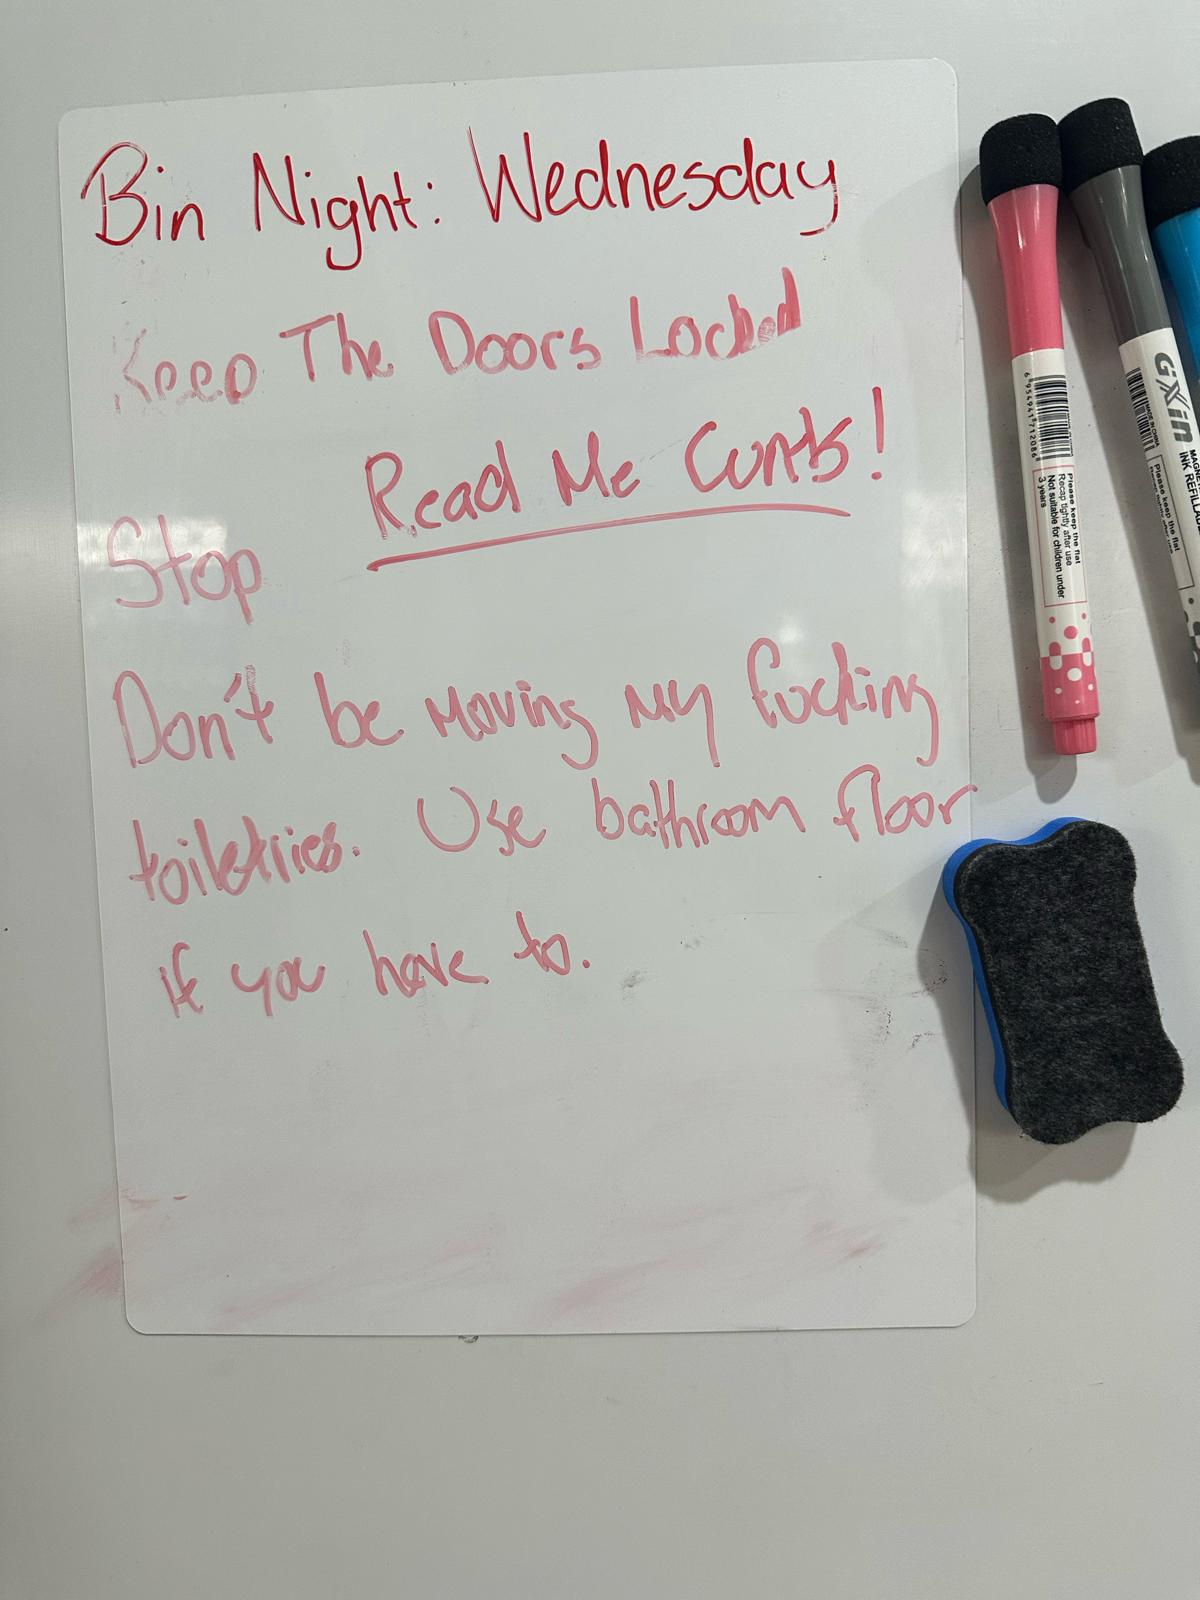 Bin Night: Wednesday
Keep The Doors Locked
Read Me Cunts!
Stop
Don't be moving my fucking
toiletries. Use bathroom floor
if you have to.
6 954941 712086
Please keep the flat
Recap tightly after use
Not suitable for children under
3 years
GXin
MADE IN CHINA
INK REFILLA
Please keep the flat